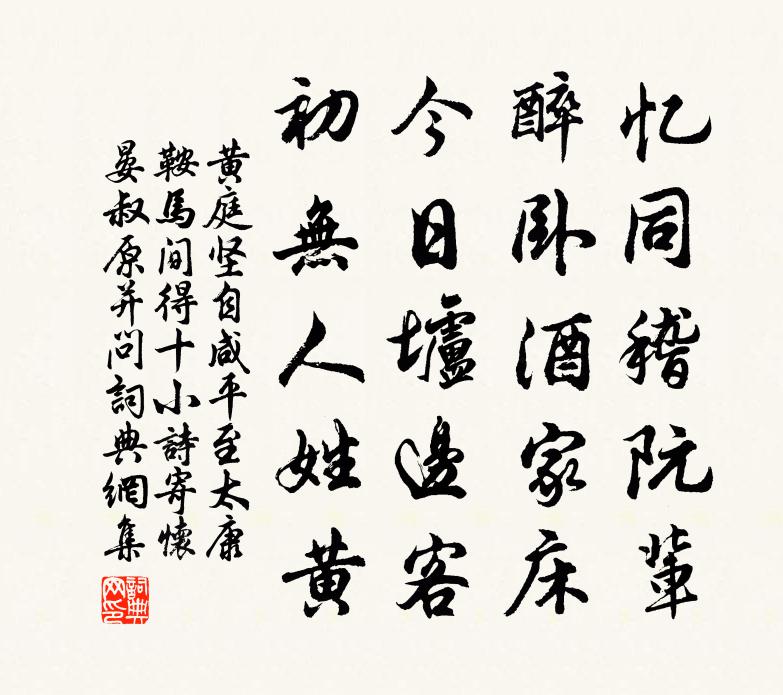 忆同嵇阮輩
醉卧酒家床
今日壚邊客
初無人姓黄
黄庭坚自咸平至太康
鞍馬间得十小詩寄懷
晏叔原并问詞典網集
詞典网印